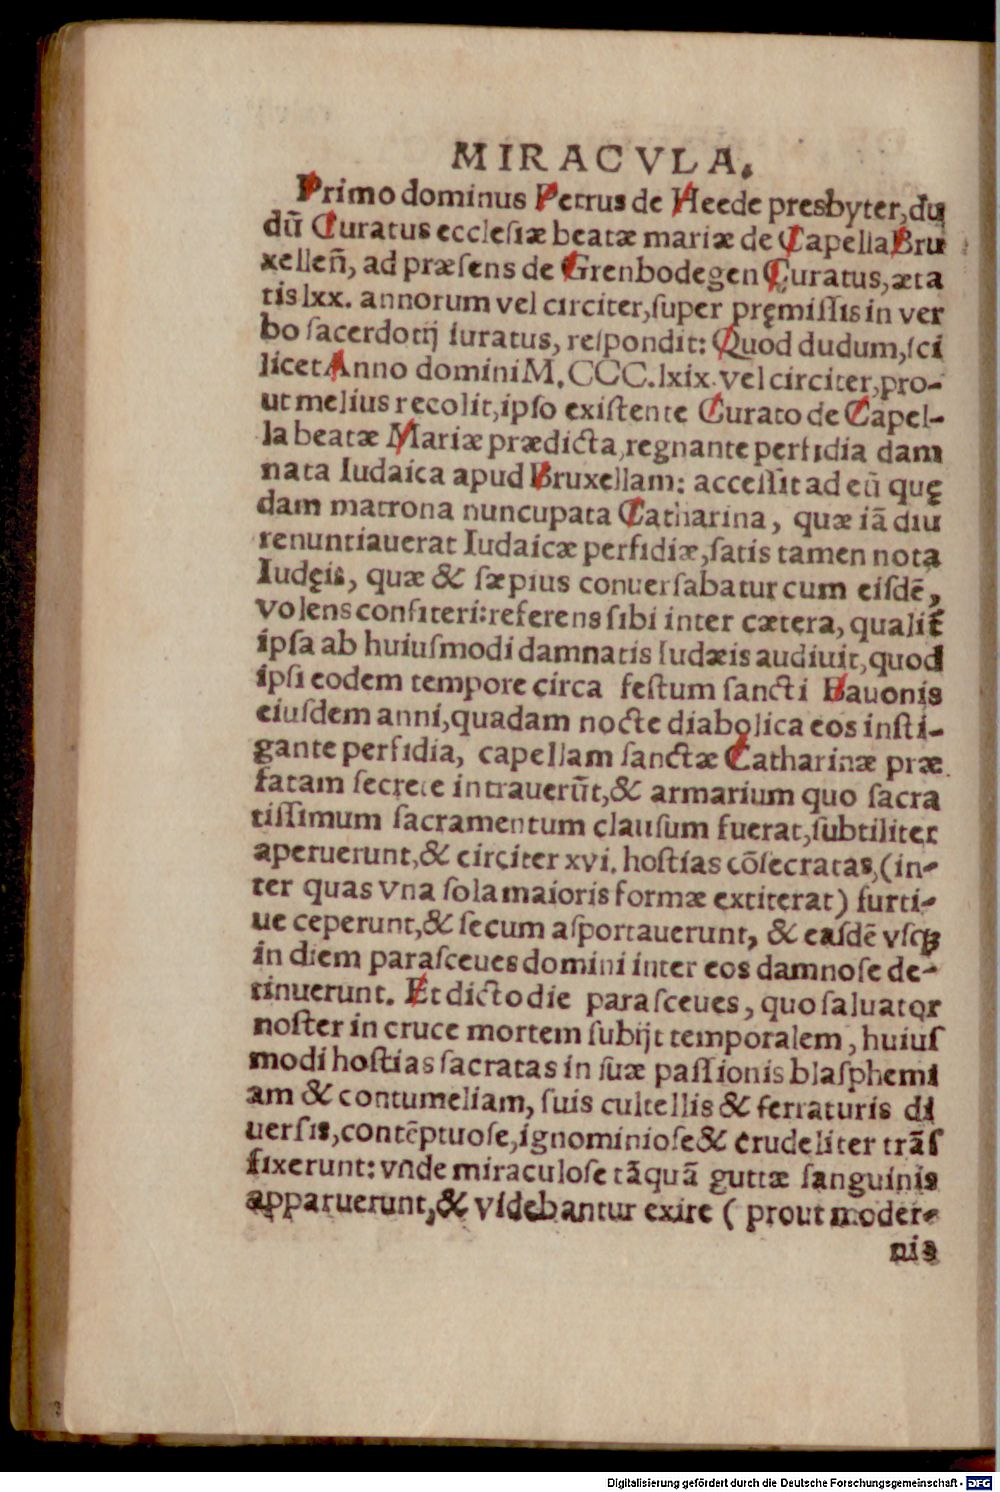 MIRACVLA.
Primo dominus Petrus de Heede presbyter, du
dū Curatus ecclesiæ beatæ mariæ de Capella Bru
xelleñ, ad præsens de Grenbodegen Curatus, æta
tis lxx. annorum vel circiter, super pręmissis in ver
bo sacerdotij iuratus, respondit: Quod dudum, sci
licet Anno domini M.CCC.lxix. vel circiter, pro-
ut melius recolit, ipso existente Curato de Capel-
la beatæ Mariæ prædicta, regnante perfidia dam
nata Iudaica apud Bruxellam: accessit ad eū quę
dam matrona nuncupata Catharina, quæ iā diu
renuntiauerat Iudaicæ perfidiæ, satis tamen nota
Iudęis, quæ & sæpius conuersabatur cum eisdē,
volens confiteri: referens sibi inter cætera, qualiť
ipsa ab huiusmodi damnatis Iudæis audiuit, quod
ipsi eodem tempore circa festum sancti Bauonis
eiusdem anni, quadam nocte diabolica eos insti-
gante perfidia, capellam sanctæ Catharinæ præ
fatam secrete intrauerūt, & armarium quo sacra
tissimum sacramentum clausum fuerat, subtiliter
aperuerunt, & circiter xvi. hostias cōsecratas, (in-
ter quas vna sola maioris formæ extiterat) furti-
ue ceperunt, & secum asportauerunt, & easdē vsqꝫ
in diem parasceues domini inter eos damnose de-
tinuerunt. Et dicto die parasceues, quo saluator
noster in cruce mortem subijt temporalem, huius
modi hostias sacratas in suæ passionis blasphemi
am & contumeliam, suis cultellis & ferraturis di
uersis, contēptuose, ignominiose & crudeliter trās
fixerunt: vnde miraculose tāquā guttæ sanguinis
apparuerunt, & videbantur exire ( prout moder-
nis
Digitalisierung gefördert durch die Deutsche Forschungsgemeinschaft - DFG